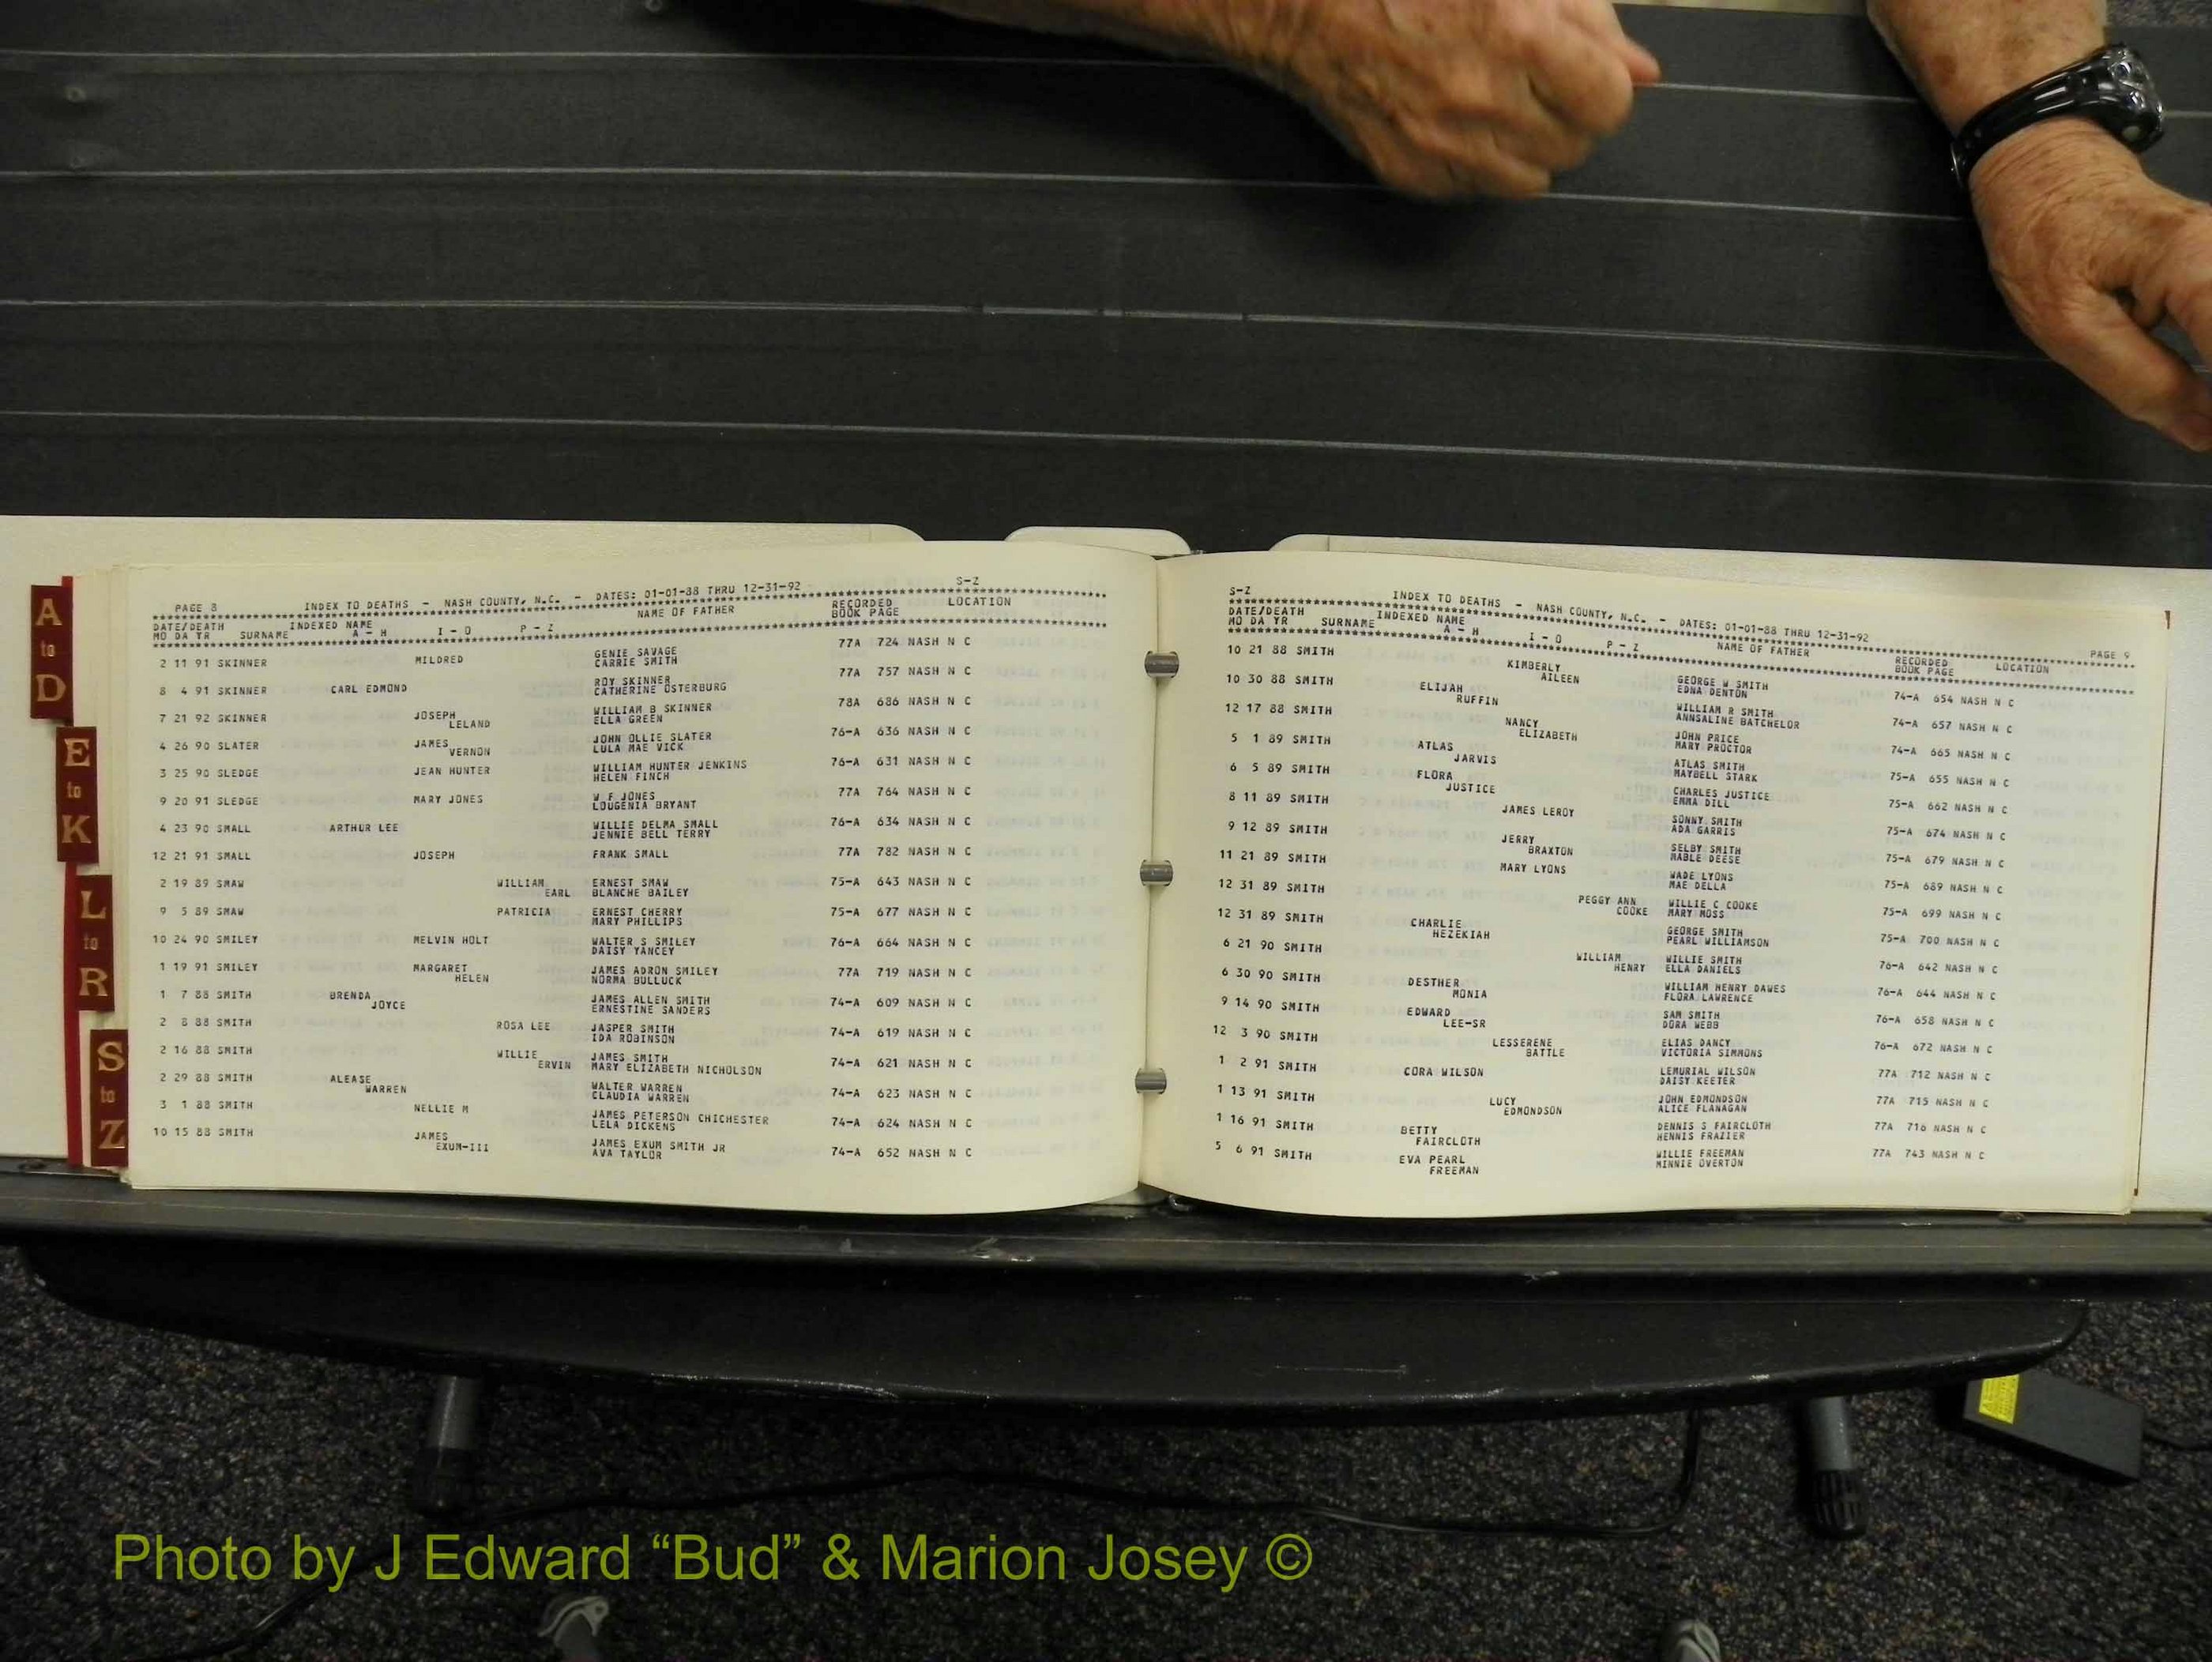 A
to
D
E
to
K
L
to
R
S
to
Z
S-Z
PAGE 8 INDEX TO DEATHS - NASH COUNTY, N.C. - DATES: 01-01-88 THRU 12-31-92
DATE/DEATH INDEXED NAME NAME OF FATHER RECORDED LOCATION
MO DA YR SURNAME A - H I - O P - Z BOOK PAGE
2 11 91 SKINNER MILDRED GENIE SAVAGE 77A 724 NASH N C
CARRIE SMITH
8 4 91 SKINNER CARL EDMOND ROY SKINNER 77A 757 NASH N C
CATHERINE OSTERBURG
7 21 92 SKINNER JOSEPH WILLIAM B SKINNER 78A 686 NASH N C
LELAND ELLA GREEN
4 26 90 SLATER JAMES JOHN OLLIE SLATER 76-A 636 NASH N C
VERNON LULA MAE VICK
3 25 90 SLEDGE JEAN HUNTER WILLIAM HUNTER JENKINS 76-A 631 NASH N C
HELEN FINCH
9 20 91 SLEDGE MARY JONES W F JONES 77A 764 NASH N C
LOUGENIA BRYANT
4 23 90 SMALL ARTHUR LEE WILLIE DELMA SMALL 76-A 634 NASH N C
JENNIE BELL TERRY
12 21 91 SMALL JOSEPH FRANK SMALL 77A 782 NASH N C
2 19 89 SMAW WILLIAM ERNEST SMAW 75-A 643 NASH N C
EARL BLANCHE BAILEY
9 5 89 SMAW PATRICIA ERNEST CHERRY 75-A 677 NASH N C
MARY PHILLIPS
10 24 90 SMILEY MELVIN HOLT WALTER S SMILEY 76-A 664 NASH N C
DAISY YANCEY
1 19 91 SMILEY MARGARET JAMES ADRON SMILEY 77A 719 NASH N C
HELEN NORMA BULLUCK
1 7 88 SMITH BRENDA JAMES ALLEN SMITH 74-A 609 NASH N C
JOYCE ERNESTINE SANDERS
2 8 88 SMITH ROSA LEE JASPER SMITH 74-A 619 NASH N C
IDA ROBINSON
2 16 88 SMITH WILLIE JAMES SMITH 74-A 621 NASH N C
ERVIN MARY ELIZABETH NICHOLSON
2 29 88 SMITH ALEASE WALTER WARREN 74-A 623 NASH N C
WARREN CLAUDIA WARREN
3 1 88 SMITH NELLIE M JAMES PETERSON CHICHESTER 74-A 624 NASH N C
LELA DICKENS
10 15 88 SMITH JAMES JAMES EXUM SMITH JR 74-A 652 NASH N C
EXUM-III AVA TAYLOR
S-Z INDEX TO DEATHS - NASH COUNTY, N.C. - DATES: 01-01-88 THRU 12-31-92 PAGE 9
DATE/DEATH INDEXED NAME NAME OF FATHER RECORDED LOCATION
MO DA YR SURNAME A - H I - O P - Z BOOK PAGE
10 21 88 SMITH KIMBERLY GEORGE W SMITH 74-A 654 NASH N C
AILEEN EDNA DENTON
10 30 88 SMITH ELIJAH WILLIAM R SMITH 74-A 657 NASH N C
RUFFIN ANNSALINE BATCHELOR
12 17 88 SMITH NANCY JOHN PRICE 74-A 665 NASH N C
ELIZABETH MARY PROCTOR
5 1 89 SMITH ATLAS ATLAS SMITH 75-A 655 NASH N C
JARVIS MAYBELL STARK
6 5 89 SMITH FLORA CHARLES JUSTICE 75-A 662 NASH N C
JUSTICE EMMA DILL
8 11 89 SMITH JAMES LEROY SONNY SMITH 75-A 674 NASH N C
ADA GARRIS
9 12 89 SMITH JERRY SELBY SMITH 75-A 679 NASH N C
BRAXTON MABLE DEESE
11 21 89 SMITH MARY LYONS WADE LYONS 75-A 689 NASH N C
MAE DELLA
12 31 89 SMITH PEGGY ANN WILLIE C COOKE 75-A 699 NASH N C
COOKE MARY MOSS
12 31 89 SMITH CHARLIE GEORGE SMITH 75-A 700 NASH N C
HEZEKIAH PEARL WILLIAMSON
6 21 90 SMITH WILLIAM WILLIE SMITH 76-A 642 NASH N C
HENRY ELLA DANIELS
6 30 90 SMITH DESTHER WILLIAM HENRY DAWES 76-A 644 NASH N C
MONIA FLORA LAWRENCE
9 14 90 SMITH EDWARD SAM SMITH 76-A 658 NASH N C
LEE-SR DORA WEBB
12 3 90 SMITH LESSERENE ELIAS DANCY 76-A 672 NASH N C
BATTLE VICTORIA SIMMONS
1 2 91 SMITH CORA WILSON LEMURIAL WILSON 77A 712 NASH N C
DAISY KEETER
1 13 91 SMITH LUCY JOHN EDMONDSON 77A 715 NASH N C
EDMONDSON ALICE FLANAGAN
1 16 91 SMITH BETTY DENNIS S FAIRCLOTH 77A 716 NASH N C
FAIRCLOTH HENNIS FRAZIER
5 6 91 SMITH EVA PEARL WILLIE FREEMAN 77A 743 NASH N C
FREEMAN MINNIE OVERTON
Photo by J Edward “Bud” & Marion Josey ©